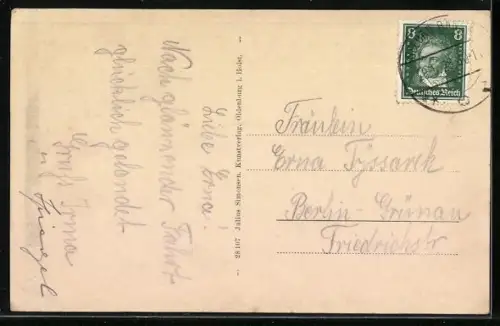 Liebe Erna!
Nach glänzender Fahrt
glücklich gelandet
Gruß Irma
u.
— 28107 Julius Simonsen, Kunstverlag, Oldenburg i. Holst. —
8 8
Deutsches Reich
Fräulein
Erna Tyssarek
Berlin-Grünau
Friedrichstr